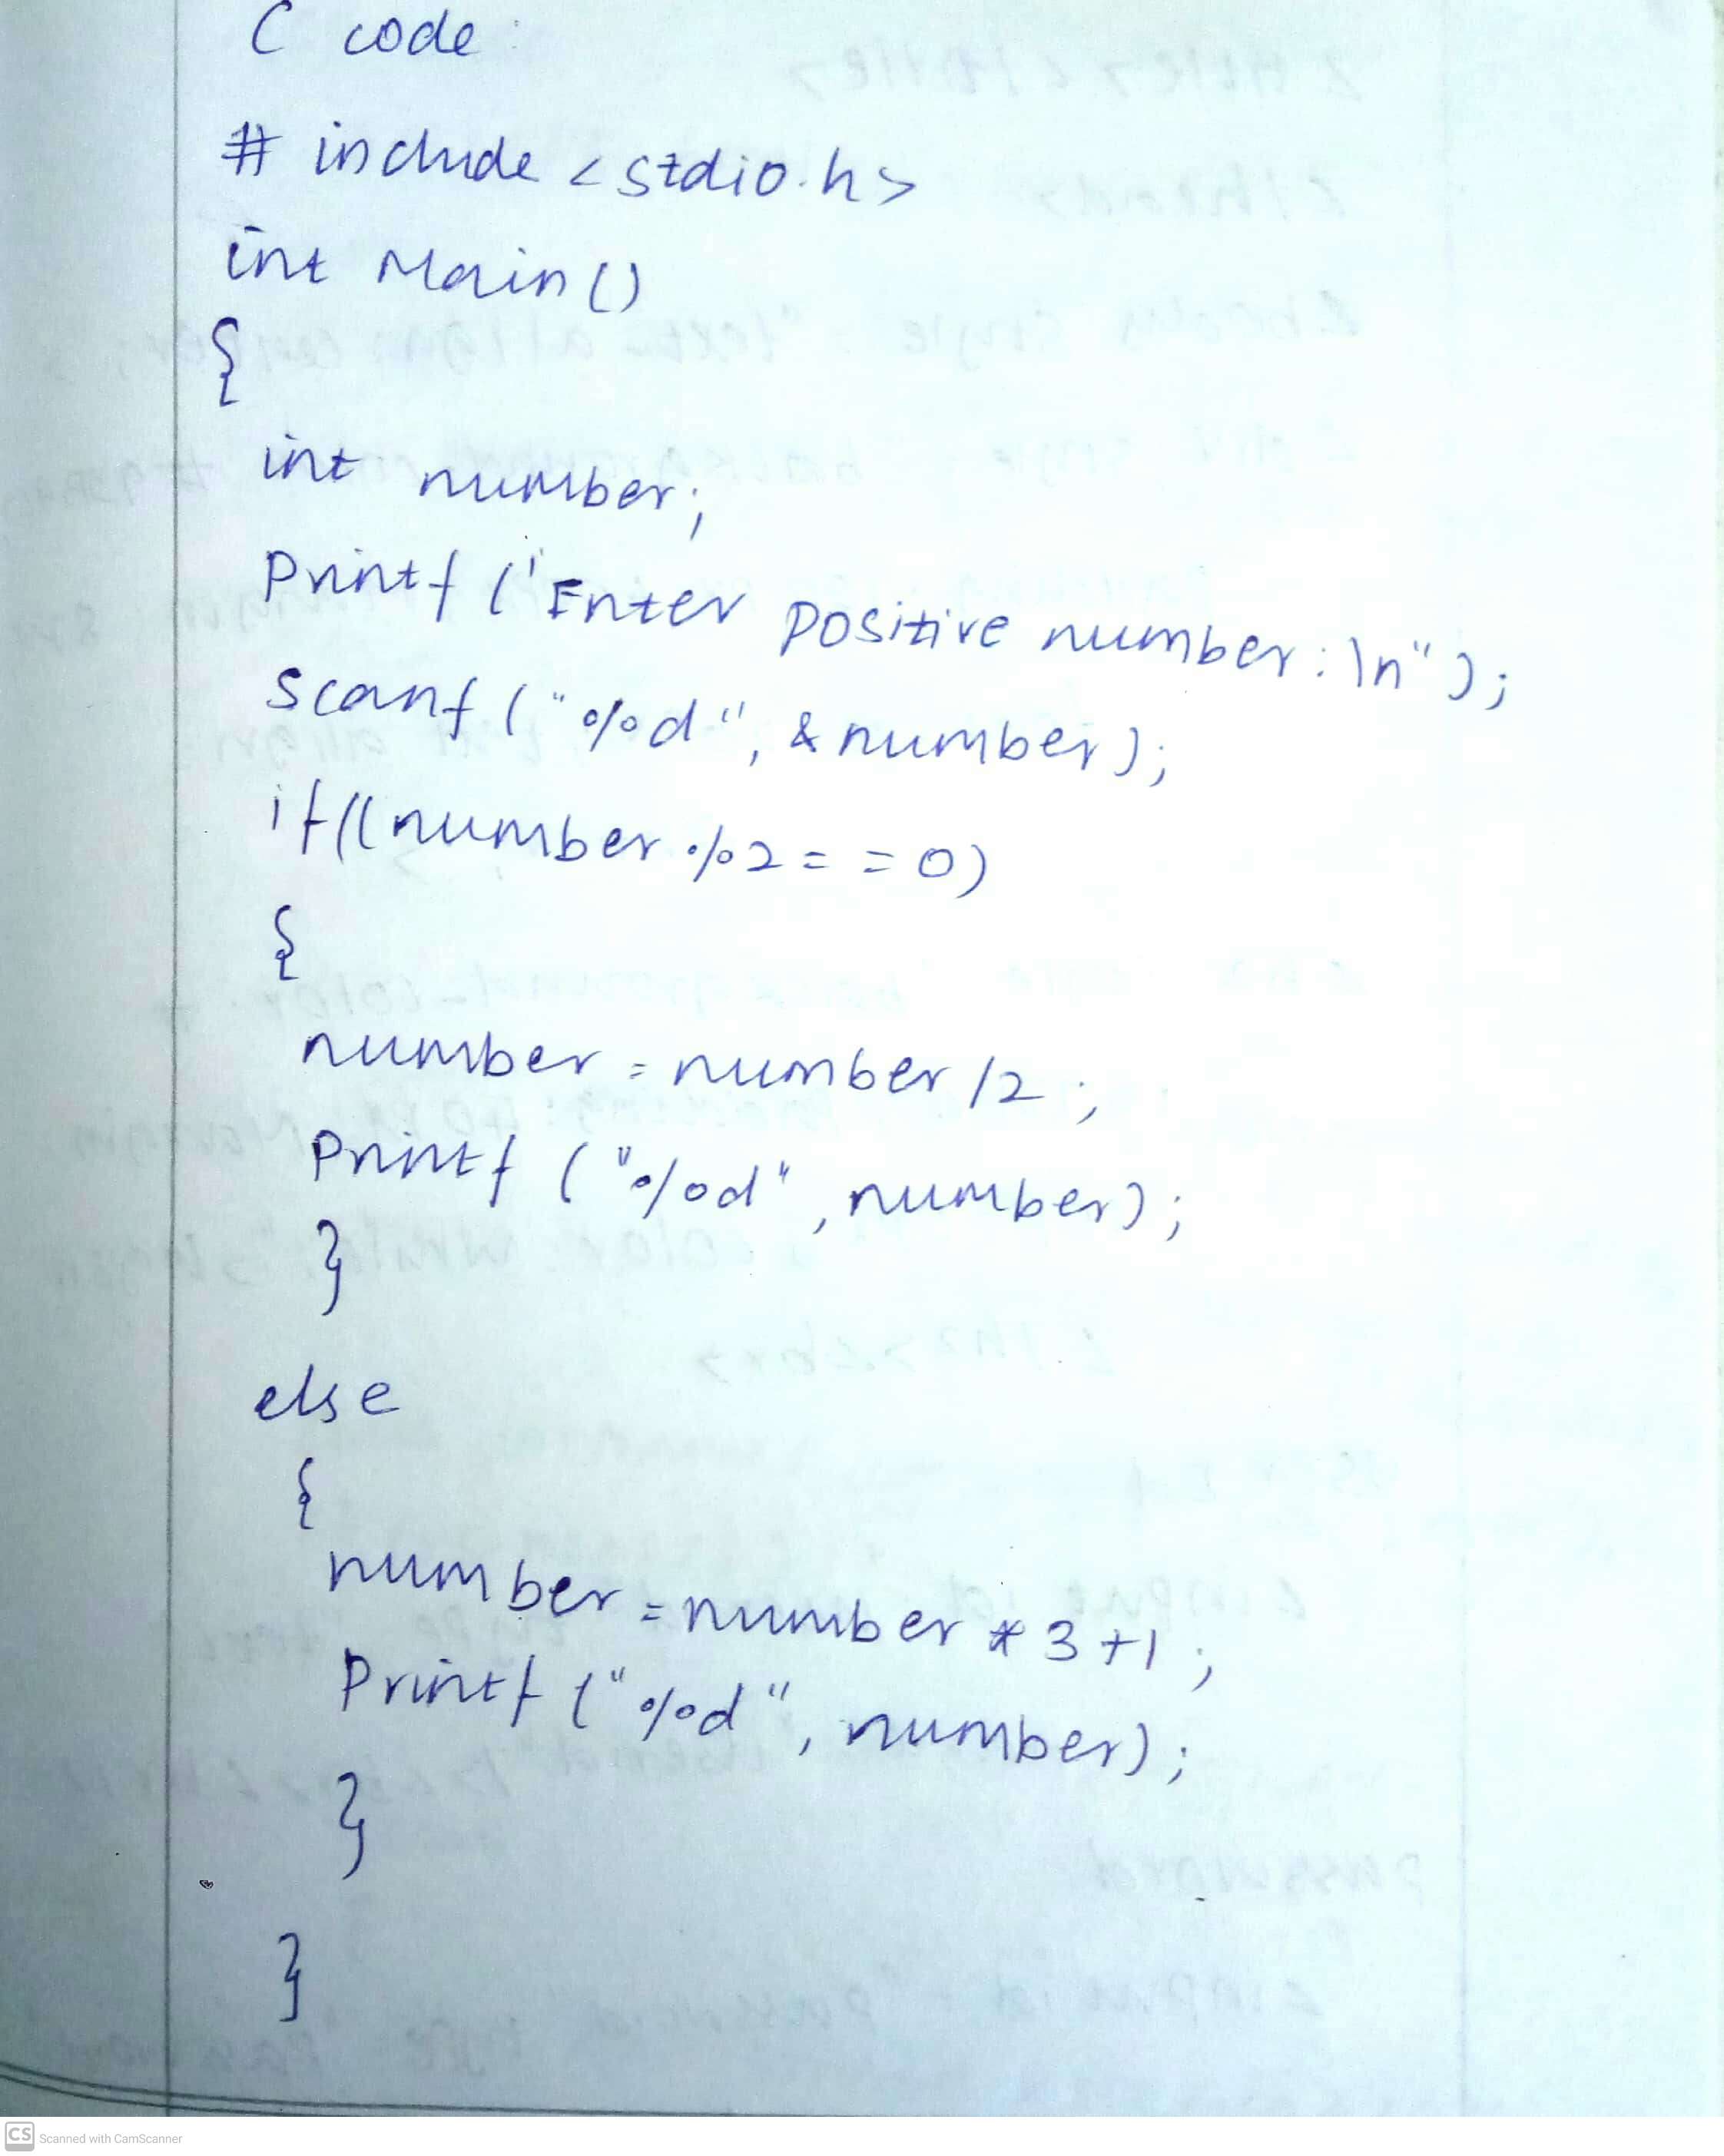 C code:
# include <stdio.h>
int Main()
{
int number;
Printf ('Enter positive number:\n");
scanf ("%d", & number);
if((number %2 = = 0)
{
number = number /2 ;
Printf ("%d", number);
}
else
{
number = number * 3 +1 ;
Printf ("%d", number);
}
}
CS Scanned with CamScanner